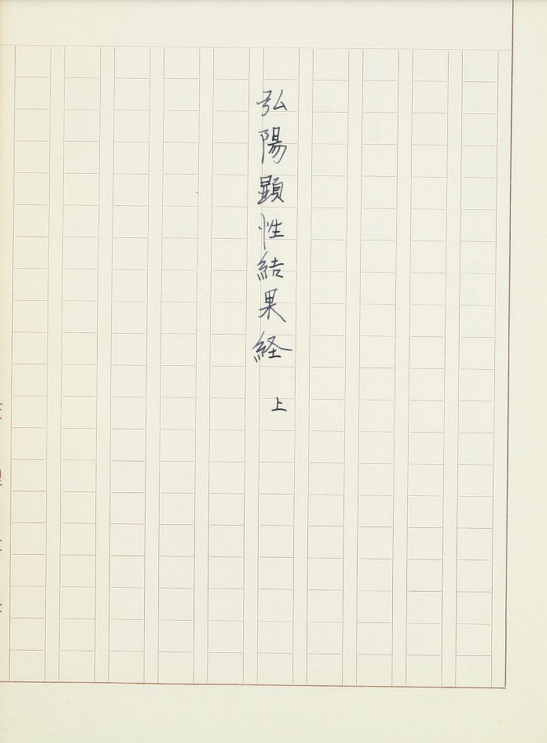 弘陽顕性結果経 上